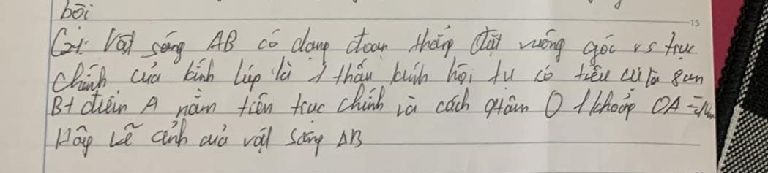 bõi
C21: Vật sáng AB có dạng đoạn thẳng đặt vuông góc vs trục
chính của kính lúp là 1 thấu kính hội tụ có tiêu cự là 8cm
Bt điểm A nằm trên trục chính và cách quang O 1 khoảng OA =
Hãy vẽ ảnh của vật sáng AB